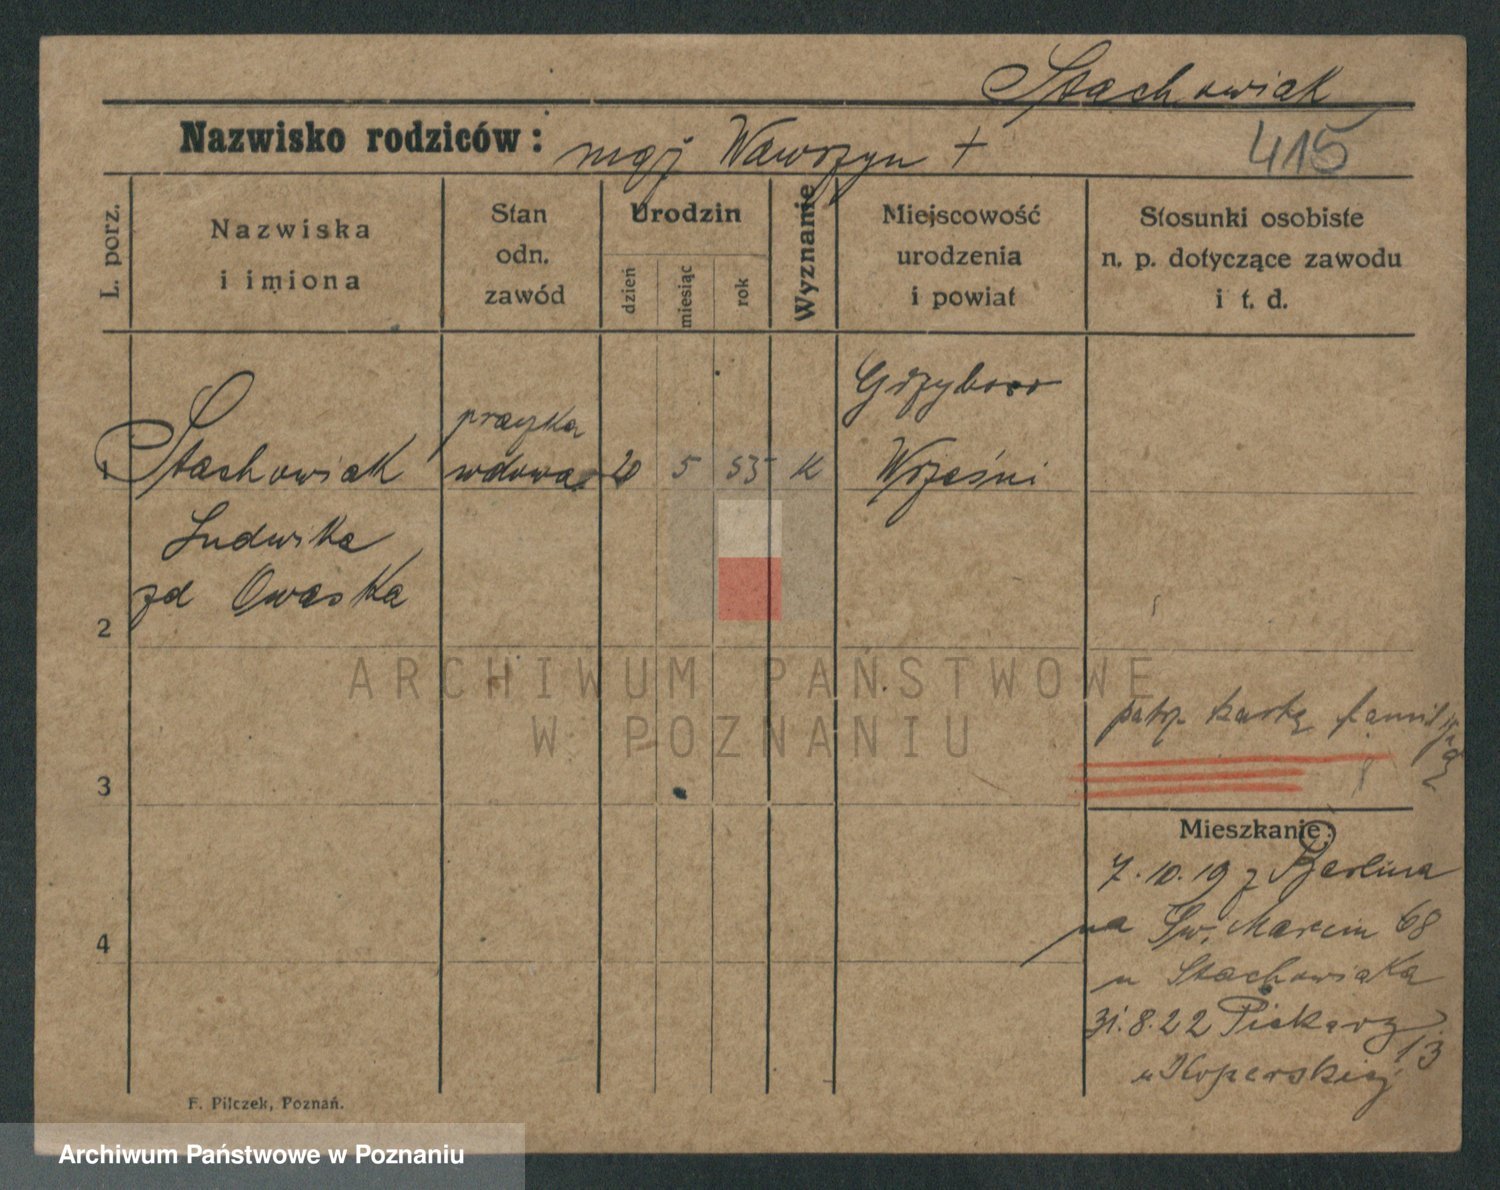 Stachowiak
Nazwisko rodziców: mąż Wawrzyn +
415
L. porz.
Nazwiska
i imiona
Stan
odn.
zawód
Urodzin
dzień
miesiąc
rok
Wyznanie
Miejscowość
urodzenia
i powiat
Stosunki osobiste
n. p. dotyczące zawodu
i t. d.
1
Stachowiak
Ludwika
zd Owaska
praczka
wdowa
20
5
53
k
Grzybowo
Wrześni
2
3
4
patrz kartę familijną
Mieszkanie:
7.10.19 z Berlina
na Św. Marcin 68
u Stachowiaka
31.8.22 Piekary 13
u Koperskiej
F. Pilczek, Poznań.
ARCHIWUM PAŃSTWOWE
W POZNANIU
Archiwum Państwowe w Poznaniu